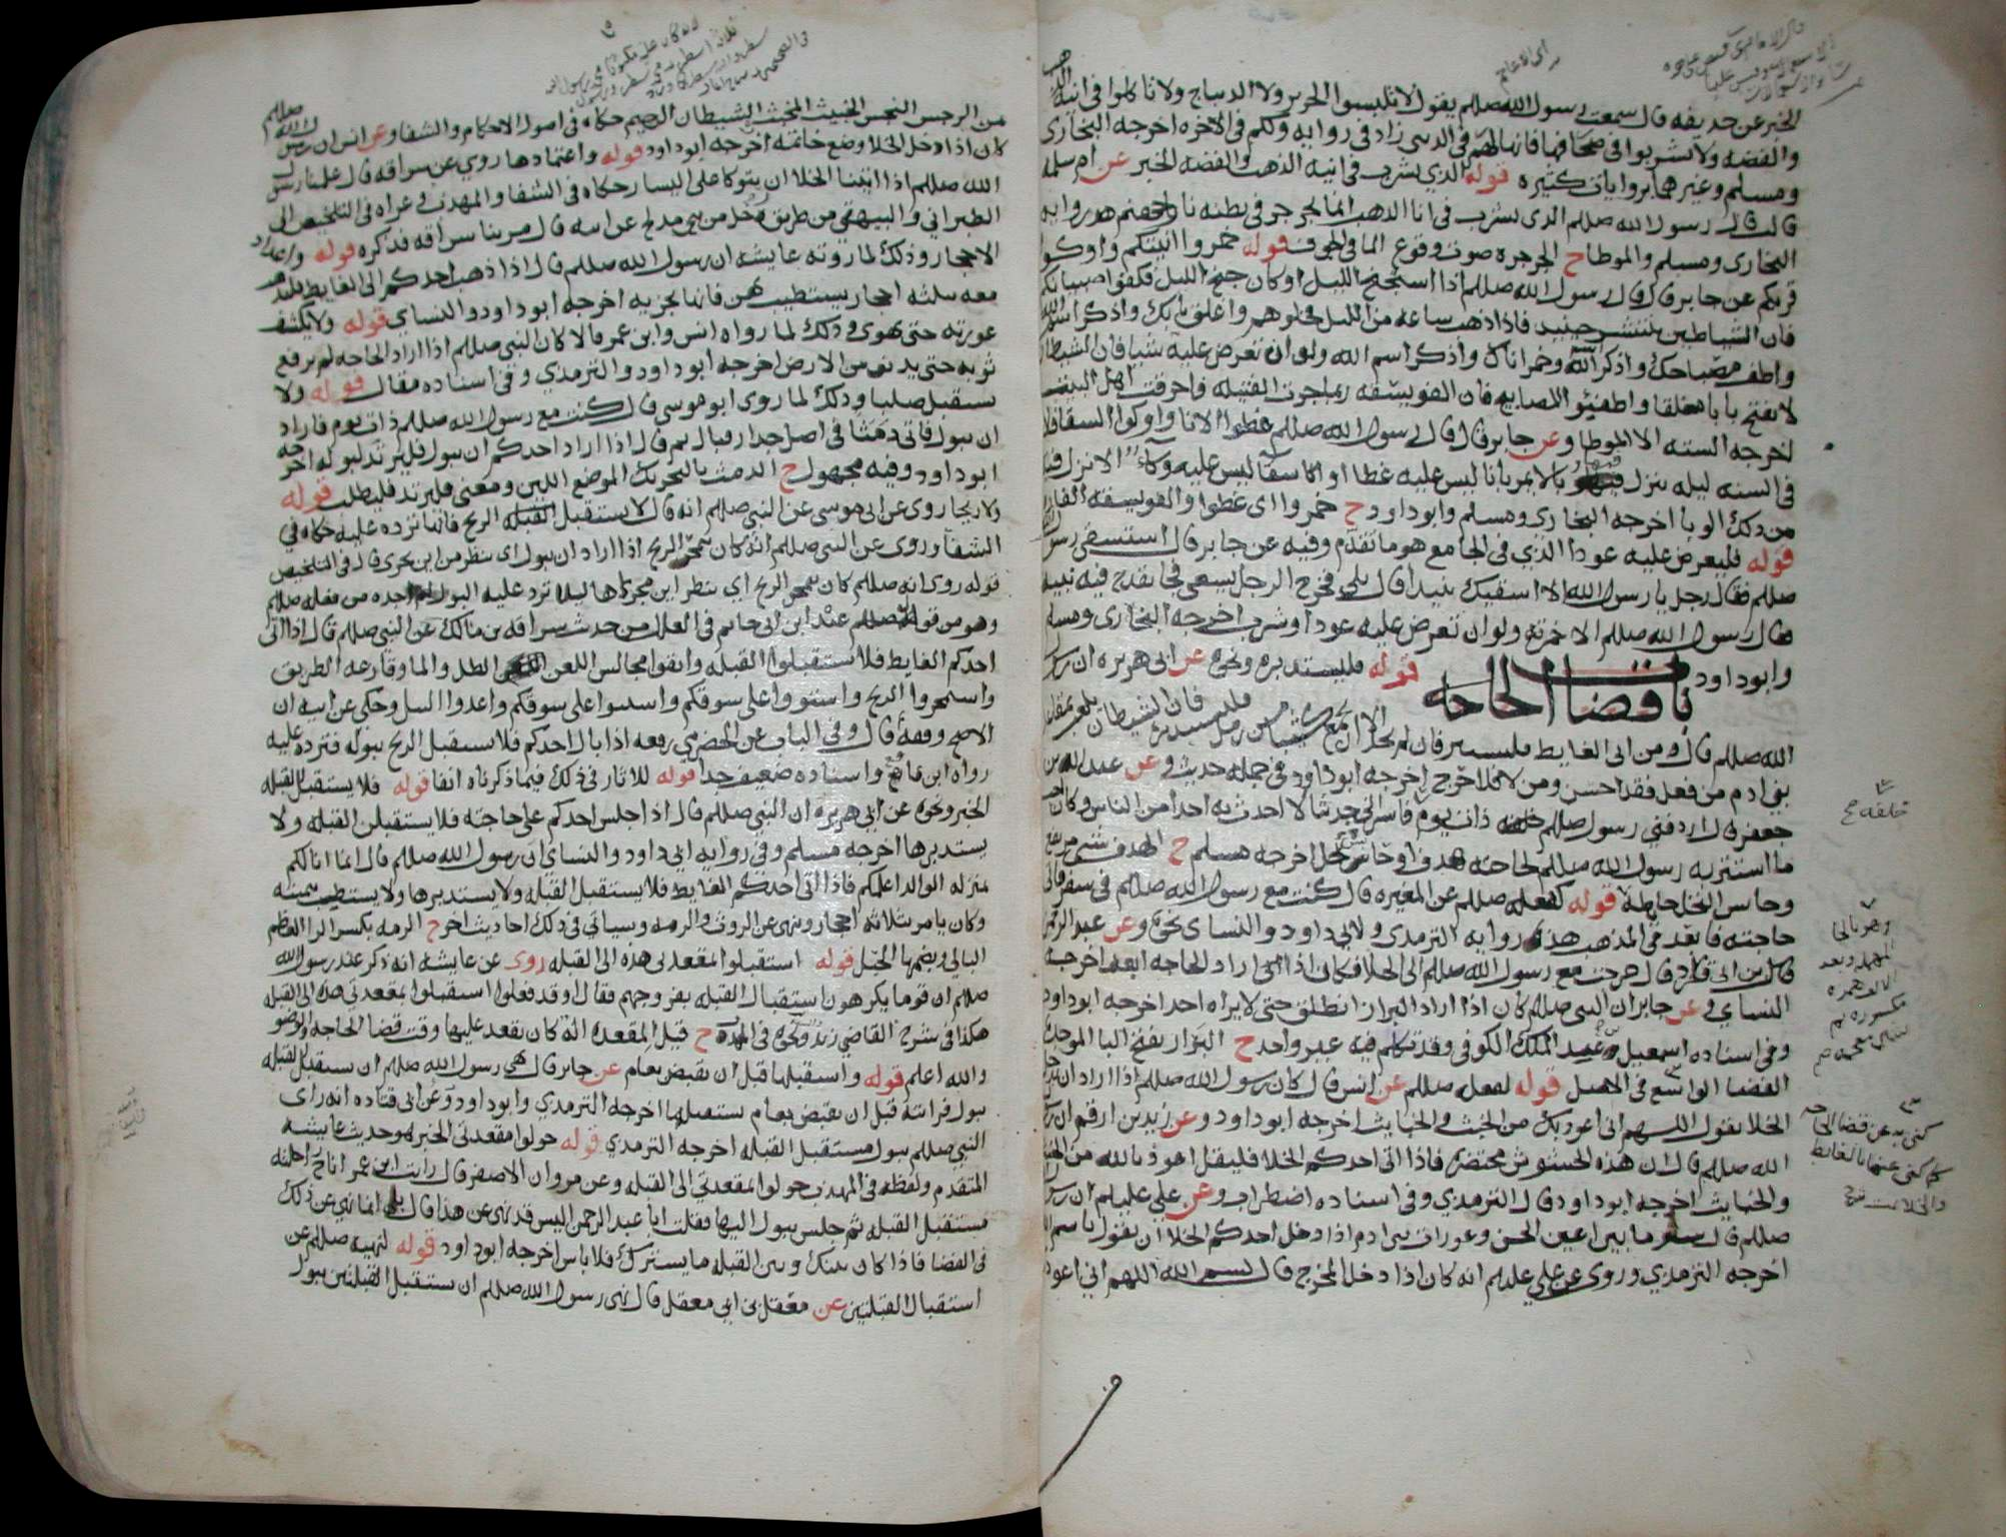 الخبر عن حذيفه قال سمعت رسول الله صللم يقول لا تلبسوا الحرير ولا الديباج ولا تاكلوا في انيه الذهب
والفضه ولا تشربوا في صحافها فانها لهم في الدنيا زاد في روايه ولكم في الاخره اخرجه البخاري
ومسلم وغيرهما بروايات كثيره قوله الذي يشرب في انيه الذهب والفضه الخبر عن ام سلمه
قالت قال رسول الله صللم الذي يشرب في انا الذهب انما يجرجر في بطنه نار جهنم هذه روايه
البخاري ومسلم والموطا ح الجرجره صوت وقوع الما في الجوف قوله خمروا انيتكم واوكوا
قربكم عن جابر قال قال رسول الله صللم اذا استجنح الليل او كان جنح الليل فكفوا صبيانكم
فان الشياطين تنتشر حينيذ فاذا ذهب ساعه من الليل فخلوهم واغلق بابك واذكر اسم الله
واطف مصباحك واذكر اسم الله وخمر اناك واذكر اسم الله ولو ان تعرض عليه شيا فان الشيطان
لا يفتح بابا مغلقا واطفيوا المصابيح فان الفويسقه ربما جرت الفتيله فاحرقت اهل البيت
اخرجه السته الا الموطا وعن جابر قال قال رسول الله صللم غطوا الانا واوكوا السقا فان
في السنه ليله ينزل فيها وبا لا يمر بانا ليس عليه غطا او سقا ليس عليه وكاء الا نزل فيه
من ذلك الوبا اخرجه البخاري ومسلم وابو داود ح خمروا اي غطوا والفويسقه الفاره
قوله فليعرض عليه عودا الذي في الجامع هو ما تقدم وفيه عن جابر قال استسقى رسول الله
صللم فقال رجل يا رسول الله الا اسقيك نبيذا قال بلى فخرج الرجل يسعى فجا بقدح فيه نبيذ
فقال رسول الله صللم الا خمرته ولو ان تعرض عليه عودا وشرب اخرجه البخاري ومسلم
وابو داود
باب قضا الحاجه
قوله فليستدبره ونحوه عن ابي هريره ان رسول
الله صللم قال ومن اتى الغايط فليستتر فان لم يجد الا ان يجمع كثيبا من رمل فليستدبره فان الشيطان يلعب بمقاعد
بني ادم من فعل فقد احسن ومن لا فلا حرج اخرجه ابو داود في جمله حديث وعن عبد الله بن
جعفر قال اردفني رسول صللم خلفه ذات يوم فاسر الي حديثا لا احدث به احدا من الناس وكان احب
ما استتر به رسول الله صللم لحاجته هدف او حايش نخل اخرجه مسلم ح الهدف شي مرتفع
وحايس النخل حايطه قوله كفعله صللم عن المغيره قال كنت مع رسول الله صللم في سفر فاتى
حاجته فابعد في المذهب هذه روايه الترمذي ولابي داود والنساي نحوه وعن عبد الرحمن
قال بن ابي قراد قال خرجت مع رسول الله صللم الى الخلا فكان اذا اراد الحاجه ابعد اخرجه
النساي وعن جابر ان النبي صللم كان اذا اراد البراز انطلق حتى لا يراه احد اخرجه ابو داود
وفي اسناده اسمعيل بن عبد الملك الكوفي وقد تكلم فيه غير واحد ح البراز بفتح البا الموحده
الفضا الواسع في الاصل قوله لفعله صللم عن انس قال كان رسول الله صللم اذا اراد ان يدخل
الخلا يقول اللهم اني اعوذ بك من الخبث والخبايث اخرجه ابو داود وعن زيد بن ارقم ان رسول
الله صللم قال ان هذه الحشوش محتضره فاذا اتى احدكم الخلا فليقل اعوذ بالله من الخبث
والخبايث اخرجه ابو داود قال الترمذي وفي اسناده اضطراب وعن علي عليلم ان رسول
صللم قال ستر ما بين اعين الجن وعورات بني ادم اذا دخل احدكم الخلا ان يقول باسم الله
اخرجه الترمذي وروى عن علي عليلم انه كان اذا دخل المخرج قال بسم الله اللهم اني اعوذ
من الرجس النجس الخبيث المخبث الشيطان الرجيم حكاه في اصول الاحكام والشفا وعن انس ان رسول الله صللم
كان اذا دخل الخلا وضع خاتمه اخرجه ابو داود قوله واعتمادها روي عن سراقه قال علمنا رسول
الله صللم اذا اتينا الخلا ان يتوكا على اليسار حكاه في الشفا والمهذب وعزاه في التلخيص الى
الطبراني والبيهقي من طريق رجل من بني مدلج عن ابيه قال مر بنا سراقه فذكره قوله واعداد
الاحجار وذلك لما روته عايشه ان رسول الله صللم قال اذا ذهب احدكم الى الغايط فليذهب
معه بثلثه احجار يستطيب بهن فانها تجزيه اخرجه ابو داود والنساي قوله ولا يكشف
عورته حتى يهوى وذلك لما رواه انس وابن عمر قالا كان النبي صللم اذا اراد الحاجه لم يرفع
ثوبه حتى يدنو من الارض اخرجه ابو داود والترمذي وفي اسناده مقال قوله ولا
يستقبل صلبا وذلك لما روى ابو موسى قال كنت مع رسول الله صللم ذات يوم فاراد
ان يبول فاتى دمثا في اصل جدار فبال ثم قال اذا اراد احدكم ان يبول فليرتد لبوله اخرجه
ابو داود وفيه مجهول ح الدمث بالتحريك الموضع اللين ومعنى فليرتد فليطلب قوله
ولا ريحا روى عن ابي موسى عن النبي صللم انه قال لا يستقبل الريح فانها ترده عليه حكاه في
الشفا وروى عن النبي صللم انه كان يتمخر الريح اذا اراد ان يبول اي ينظر من اين تجري قال في التلخيص
قوله روى انه صللم كان يتمخر الريح اي ينظر اين مجراها ليلا ترد عليه البول لم اجده من فعله صللم
وهو من قوله صللم عند ابن ابي حاتم في العلل من حديث سراقه بن مالك عن النبي صللم قال اذا اتى
احدكم الغايط فلا يستقبلوا القبله واتقوا مجالس اللعن الظل والما وقارعه الطريق
واستمخروا الريح واستووا على سوقكم واعدوا النبل وحكى عن ابيه ان
الاصح وقفه قال وفي الباب عن الحضرمي رفعه اذا بال احدكم فلا يستقبل الريح ببوله فترده عليه
رواه ابن قانع واسناده ضعيف جدا قوله للاثار في ذلك فيما ذكرناه انفا قوله فلا يستقبل القبله
الخبر ونحوه عن ابي هريره ان النبي صللم قال اذا جلس احدكم على حاجته فلا يستقبلن القبله ولا
يستدبرها اخرجه مسلم وفي روايه ابي داود والنساي ان رسول الله صللم قال انما انا لكم
بمنزله الوالد اعلمكم فاذا اتى احدكم الغايط فلا يستقبل القبله ولا يستدبرها ولا يستطيب بيمينه
وكان يامر بثلاثه احجار وينهى عن الروث والرمه وسياتي في ذلك احاديث اخر ح الرمه بكسر الرا العظم
البالي وبضمها الحبل قوله استقبلوا بمقعدتي هذه الى القبله روى عن عايشه انه ذكر عند رسول الله
صللم ان قوما يكرهون استقبال القبله بفروجهم فقال وقد فعلوا استقبلوا بمقعدتي هذه الى القبله
هكذا في شرح القاضي زيد ونحوه في المهذب ح قيل المقعده اله كان يقعد عليها وقت قضا الحاجه والوضو
والله اعلم قوله واستقبلها قبل ان يقبض بعام عن جابر قال نهى رسول الله صللم ان نستقبل القبله
ببول فرايته قبل ان يقبض بعام يستقبلها اخرجه الترمذي وابو داود وعن ابي قتاده انه راى
النبي صللم يبول مستقبل القبله اخرجه الترمذي قوله حولوا مقعدتي الخبر هو حديث عايشه
المتقدم ولفظه في المهذب حولوا مقعدتي الى القبله وعن مروان الاصفر قال رايت ابن عمر اناخ راحلته
مستقبل القبله ثم جلس يبول اليها فقلت ابا عبد الرحمن اليس قد نهى عن هذا قال بلى انما نهي عن ذلك
في الفضا فاذا كان بينك وبين القبله ما يسترك فلا باس اخرجه ابو داود قوله لنهيه صللم عن
استقبال القبلتين عن معقل بن ابي معقل قال نهى رسول الله صللم ان نستقبل القبلتين ببول